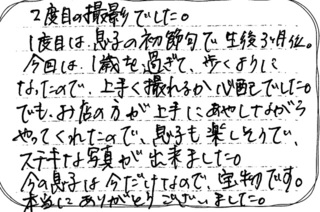 2度目の撮影でした。
1度目は、息子の初節句で生後3ヶ月位。
今回は、1歳を過ぎて、歩くように
なったので、上手く撮れるか心配でした。
でも、お店の方が上手にあやしながら
やってくれたので、息子も楽しそうで、
ステキな写真が出来ました。
今の息子は今だけなので、宝物です。
本当にありがとうございました。